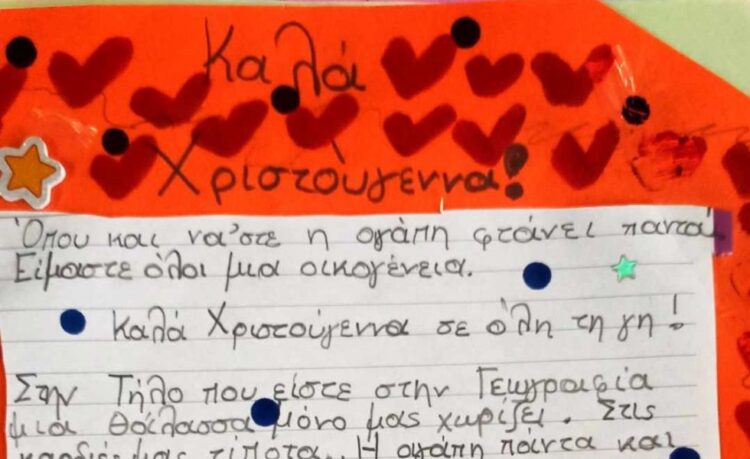 Καλά
Χριστούγεννα!
Όπου και να'στε η αγάπη φτάνει παντά
Είμαστε όλοι μια οικογένεια.
Καλά Χριστούγεννα σε όλη τη γη!
Στην Τήλο που είστε στην Γεωγραφία
μια θάλασσα μόνο μας χωρίζει. Στις
καρδιές μας τίποτα.. Η αγάπη πάντα και